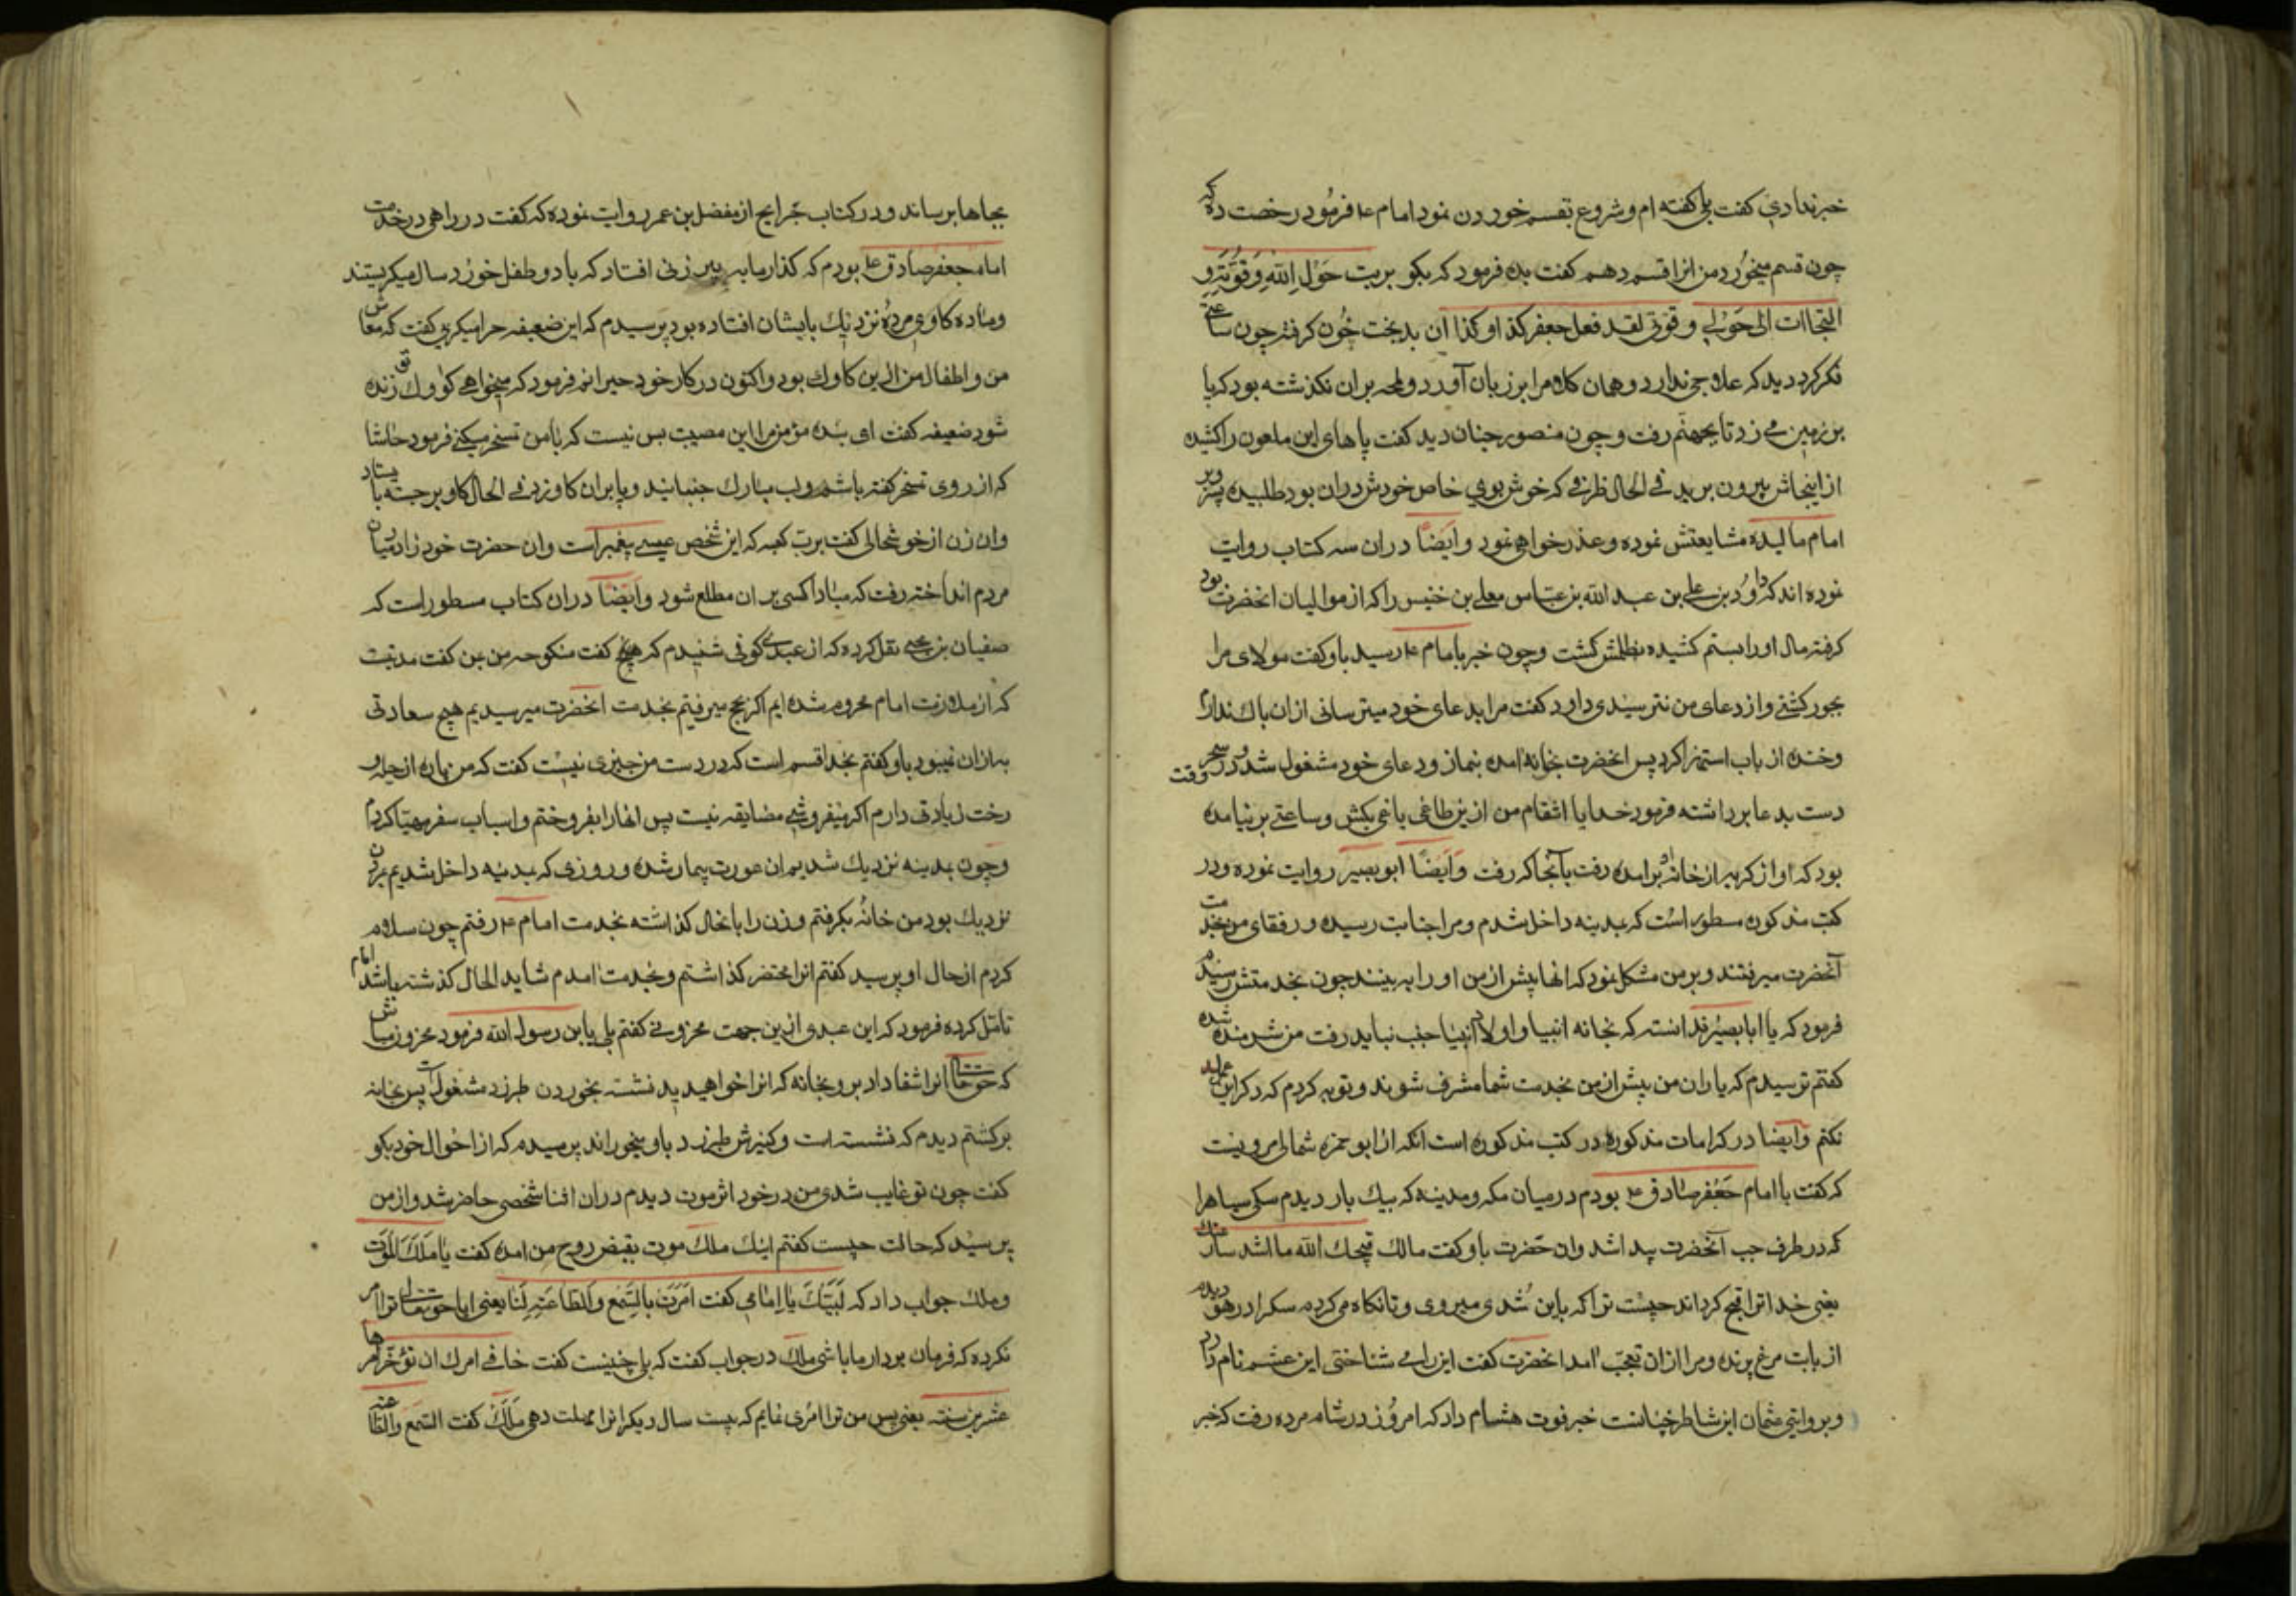 خبر نداری گفت بلی گفته ام و شروع بقسم خوردن نمود امام ع فرمود رخصت ده که
چون قسم میخورد من انرا قسم دهم گفت بده فرمود که بکو بریت حَوْلِ اللّهِ وَقُوَّتِهِ و
التجاات الی حَوْلی و قوتی لقد فعل جعفر کذا و کذا ان بدبخت خُون کرفته چون ساعتی
فکر کرد دید که علاجی ندارد و همان کلام را بر زبان آورد و لمحه بران نکذشته بود که پا
بر زمین می زد تا بجهنّم رفت و چون منصور چنان دید کفت پاهای این ملعون را کشیده
از اینجاش بیرون برید فی الحال ظرفی که خوش بوی خاص خودش دران بود طلبیده بر
امام مالیده مشایعتش نموده و عذرخواهی نمود وایضًا دران سه کتاب روایت
نموده اند که داوُد بن علی بن عبد الله بن عباس معلی بن خنیس را که از موالیان انحضرت بود
کرفته مال او را بستم کشیده بظلمش کشت وچون خبر بامام ع رسید باو کفت مولای مرا
بجور کشتی و از دعای من نترسیدی داود کفت مرا بدعای خود میترسانی ازان باک ندارم
وخنده از باب استهزا کرد پس انحضرت بخانه امده بنماز و دعای خود مشغول شد و در سحر وقت
دست بدعا برداشته فرمود خدایا انتقام من ازین طاغی یاغی بکش و ساعتی برنیامده
بود که اواز کریه از خانه اش برامده رفت بآنجا که رفت وَایَضًا ابو بصیر روایت نموده و در
کتب مذکوره مسطور است که بمدینه داخل شدم و مرا جنابت رسیده و رفقای من بخدمت
آنحضرت میرفتند و بر من مشکل نمود که انها پیش از من او را به بینند چون بخدمتش رسیدم
فرمود که یا ابا بصیر ندانسته که بخانه انبیا و اولاد انبیا جنب نباید رفت من شرمنده شده
کفتم ترسیدم که یاران من پیش از من بخدمت شما مشرف شوند و توبه کردم که دکر این عمل
نکنم وایضا در کرامات مذکوره در کتب مذکوره است انکه از ابو حمزه ثمالی مرویست
که کفت با امام جَعْفَر صادق ع بودم در میان مکه و مدینه که بیک بار دیدم سکی سیاه را
که در طرف چپ آنحضرت پیدا شد وان حَضرت باو کفت مالک قبحک الله ما اشد سارعتک
یعنی خدا ترا قبح کرداند چیست ترا که باین تُندی میروی و تا نکاه می کردم سک را در هوا دیدم
از بابت مرغ پرنده و مرا ازان تعجّب امد انحضرت کفت این را می شناختی این عشم نام دارد
و بروایتی عثمان این شاطر جنّانست خبر فوت هشام داد که امروز در شام مرده رفت که خبر
بجاها برساند و در کتاب جَرایح از مفضل بن عمر روایت نموده که کفت در راهی در خدمت
امام جعفر صادق ع بودم که کذار ما به پیر زنی افتاد که با دو طفل خورد سال میکریستند
و ماده کاوی مرده نزدیک بایشان افتاده بود پرسیدم که این ضعیفه چرا میکری کفت که معاش
من و اطفال من ازین کاوک بود و اکنون در کار خود حیرانم فرمود که میخواهی کاوک تو زنده
شود ضعیفه کفت ای بنده مؤمن مرا این مصیبت بس نیست که با من تسخر میکنی فرمود حاشا
که از روی تسخر کفته باشم و لب مبارک جنبانید و پا بران کاو زد فی الحال کاو برجسته بایستاد
وان زن از خوشحالی کفت برب کعبه که این شخص عیسی پیغمبر است وان حضرت خود را در میان
مردم انداخته رفت که مبادا کسی بران مطلع شود وایضًا دران کتاب مسطور است که
صفیان بن یحیی نقل کرده که از عبدی کوفی شنیدم که کفت منکوحه من بمن کفت مدتیست
که از ملازمت امام محروم شده ایم اکر بحج میرفتیم بخدمت انحضرت میرسیدیم هیچ سعادتی
به ازان نمیبود باو کفتم بخدا قسم است که در دست من چیزی نیست کفت که من پاره از حله و
رخت زیادتی دارم اکر بفروشی مضایقه نیست پس انها را بفروختم و اسباب سفر مهیّا کردم
وچون بمدینه نزدیک شدیم ان عورت بیمار شده و روزی که بمدینه داخل شدیم بمردن
نزدیک بود من خانه بکرفتم و زن را بانحال کذاشته بخدمت امام ع رفتم چون سلام
کردم از حال او پرسید کفتم انرا محتضر کذاشتم و بخدمت امدم شاید الحال کذشته باشد امام
تامّل کرده فرمود که این عبدی ازین جهت محزونی کفتم بلی یابن رسول الله فرمود محزون مباش
که حق تعالی انرا شفا داد برو بخانه که انرا خواهید دید نشسته بخوردن طبرزد مشغول است پس بخانه
برکشتم دیدم که نشسته است و کنیزش طبرزد باو میخوراند پرسیدم که از احوال خود بکو
کفت چون تو غایب شدی من در خود اثر موت دیدم دران اثنا شخصی حاضر شد و از من
پرسید که حالت چیست کفتم اینک ملک موت بقبض روح من امده کفت یا مَلَکَ المَوْت
و ملک جواب داد که لَبَّیْکَ یا اِمامی کفت اَمَرَت بالسَّمْعِ وَالطاعَةِ لَنا یعنی ایا حق تعالی ترا امر
نکرده که فرمان بردار ما باشی ملک در جواب کفت که بلی چنینست کفت فانی امرک ان تؤخّر امرها
عشرین سنته یعنی پس من ترا امر می نمایم که بیست سال دیکر انرا مهلت دهی مَلَک کفت السَّمْع والطاعه